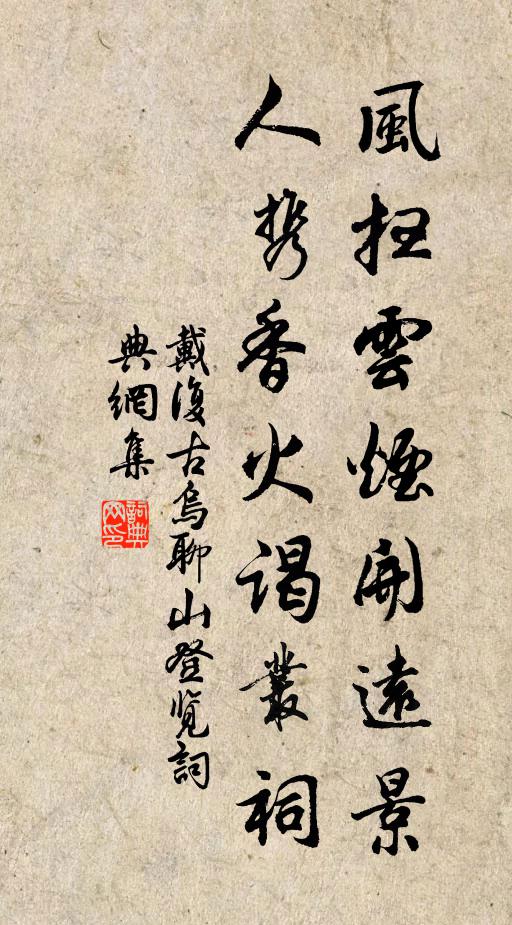 風扫雲煙開遠景
人携香火謁叢祠
戴復古烏聊山登览詞
典網集
詞典網印